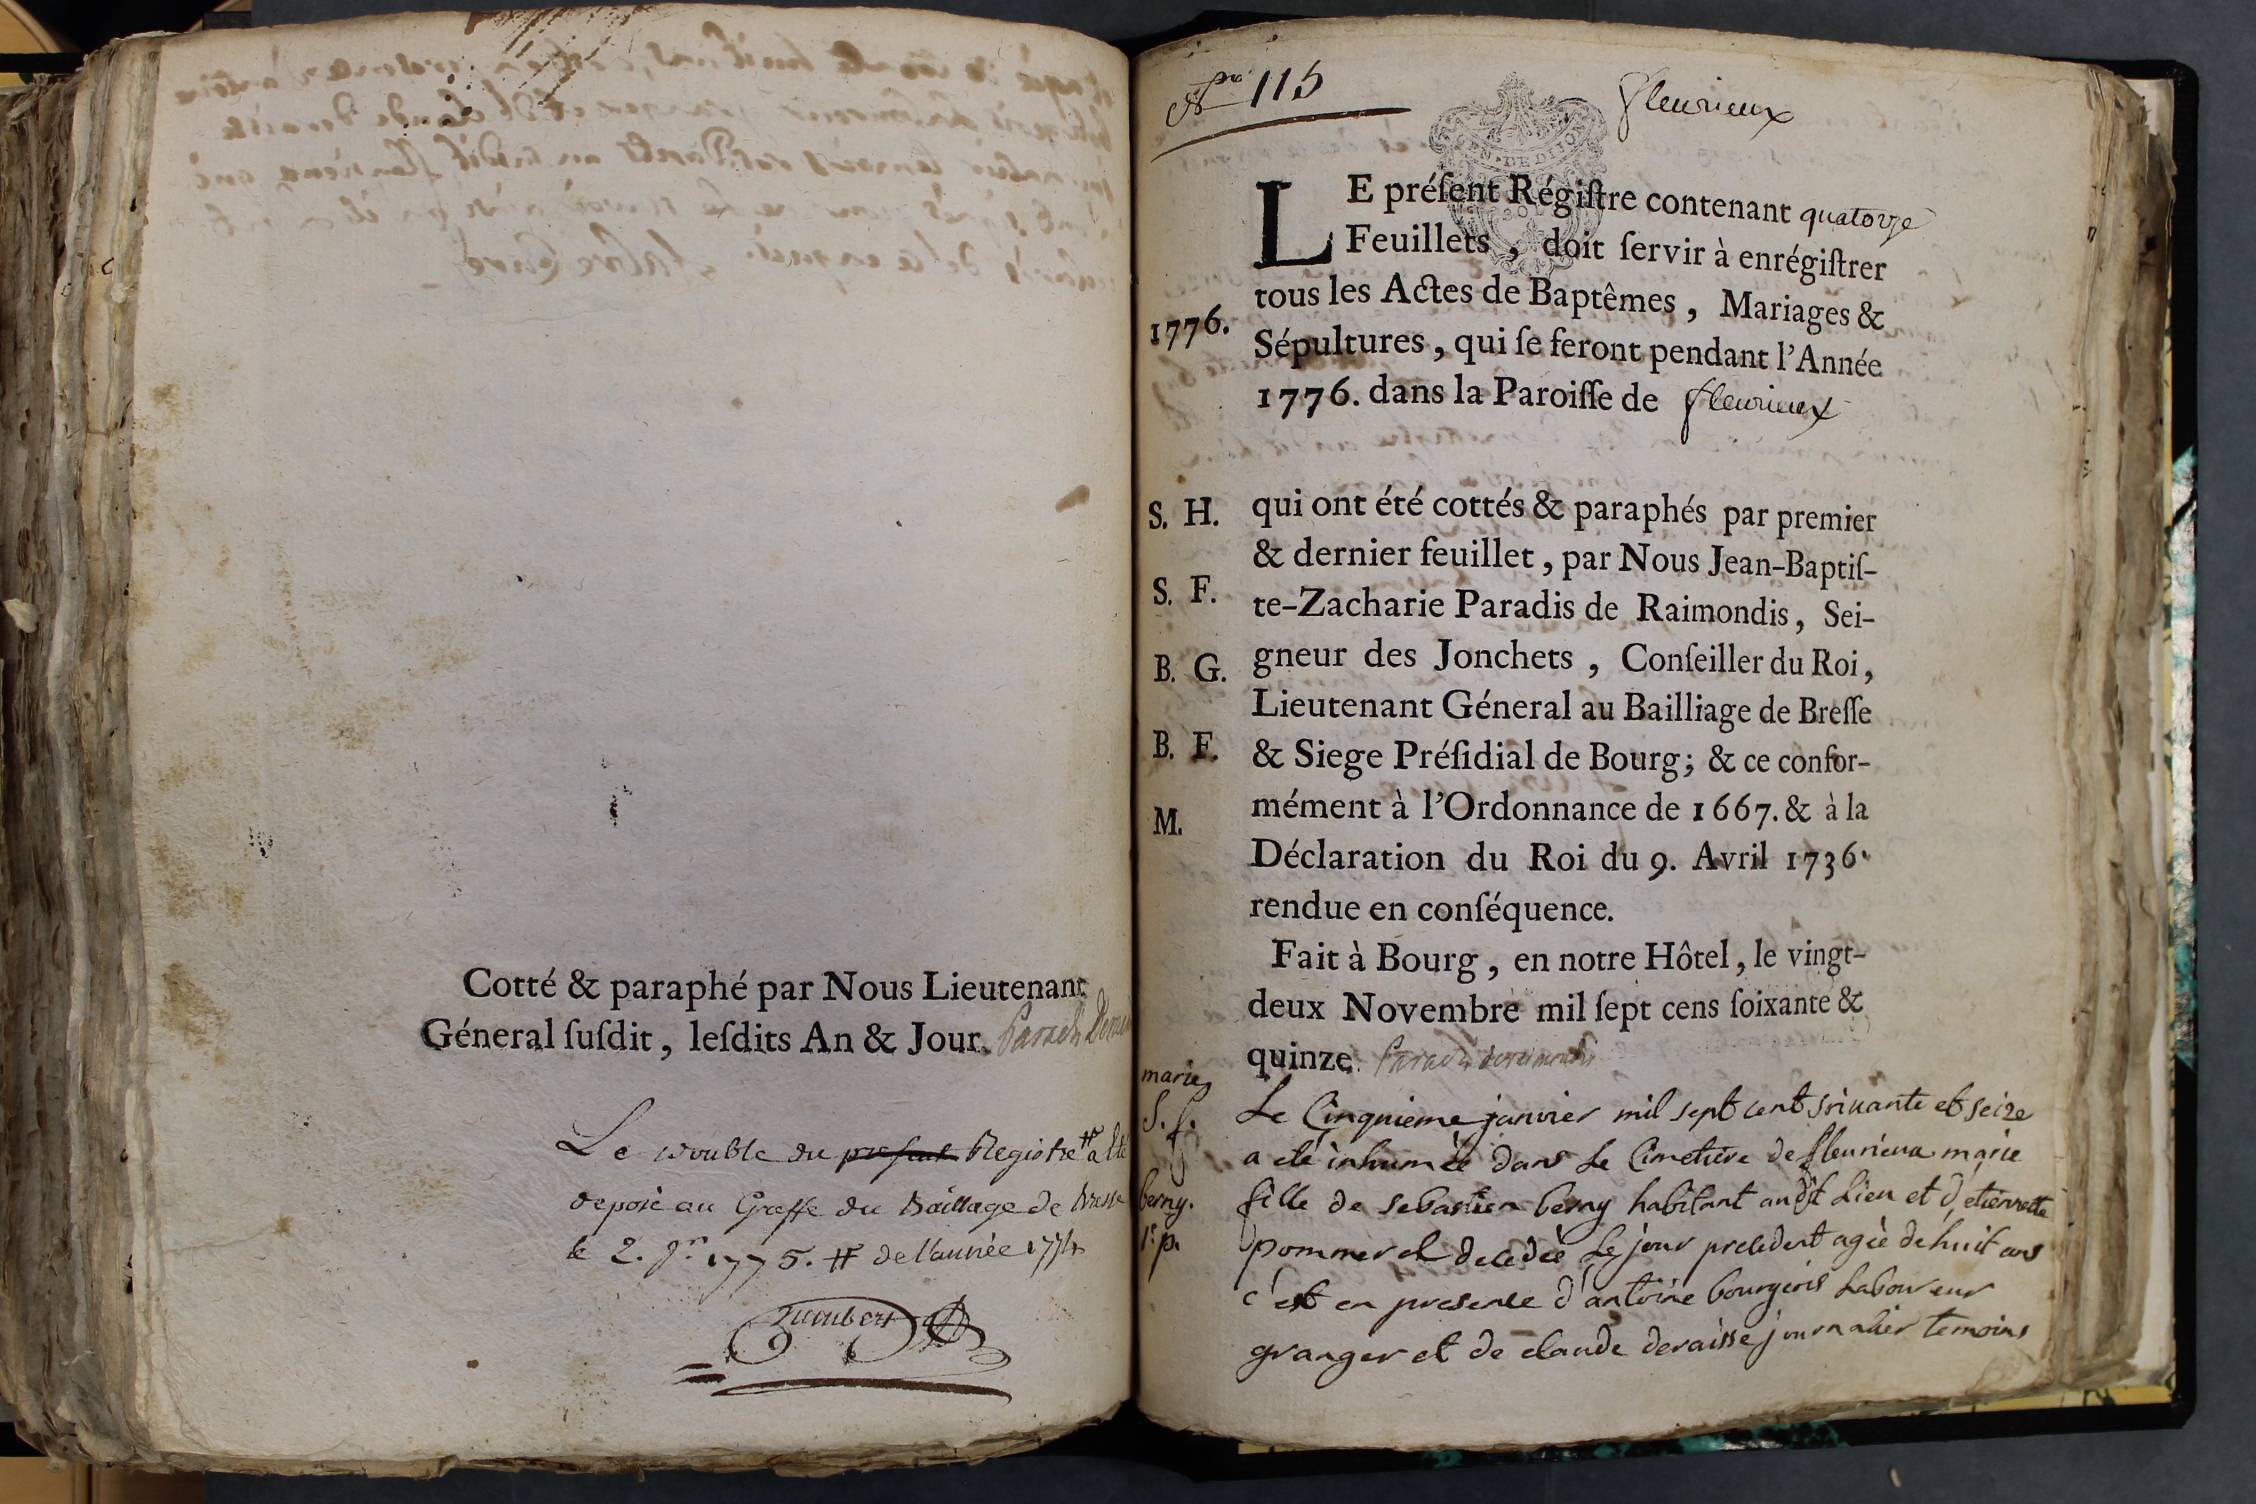 Cotté & paraphé par Nous Lieutenant
Géneral ſuſdit, leſdits An & Jour.
Le double du present Registre # a été
deposé au Greffe du Bailliage de Bresse
le 2. Jr. 1775. # de l'année 1774
115
fleurieux
LE préſent Régiſtre contenant quatorze
Feuillets, doit ſervir à enrégiſtrer
tous les Actes de Baptêmes, Mariages &
1776.
Sépultures, qui ſe feront pendant l'Année
1776. dans la Paroiſſe de fleurieux
S. H.
qui ont été cottés & paraphés par premier
& dernier feuillet, par Nous Jean-Baptiſ-
S. F.
te-Zacharie Paradis de Raimondis, Sei-
B. G.
gneur des Jonchets, Conſeiller du Roi,
Lieutenant Géneral au Bailliage de Breſſe
B. F.
& Siege Préſidial de Bourg; & ce confor-
M.
mément à l'Ordonnance de 1667. & à la
Déclaration du Roi du 9. Avril 1736.
rendue en conſéquence.
Fait à Bourg, en notre Hôtel, le vingt-
deux Novembre mil ſept cens ſoixante &
quinze. Paradis de raimondis
marie
S. f.
berny.
1e p.
Le Cinquieme janvier mil sept cent soixante et seize
a eté inhumée dans Le Cimetiere de fleurieux marie
fille de sebastien berny habitant audit Lieu et d'etiennette
pommerel decedée Le jour precedent agée de huit ans
c'est en presence d'antoine bourgeois Laboureur
granger et de claude deraisse journalier temoins